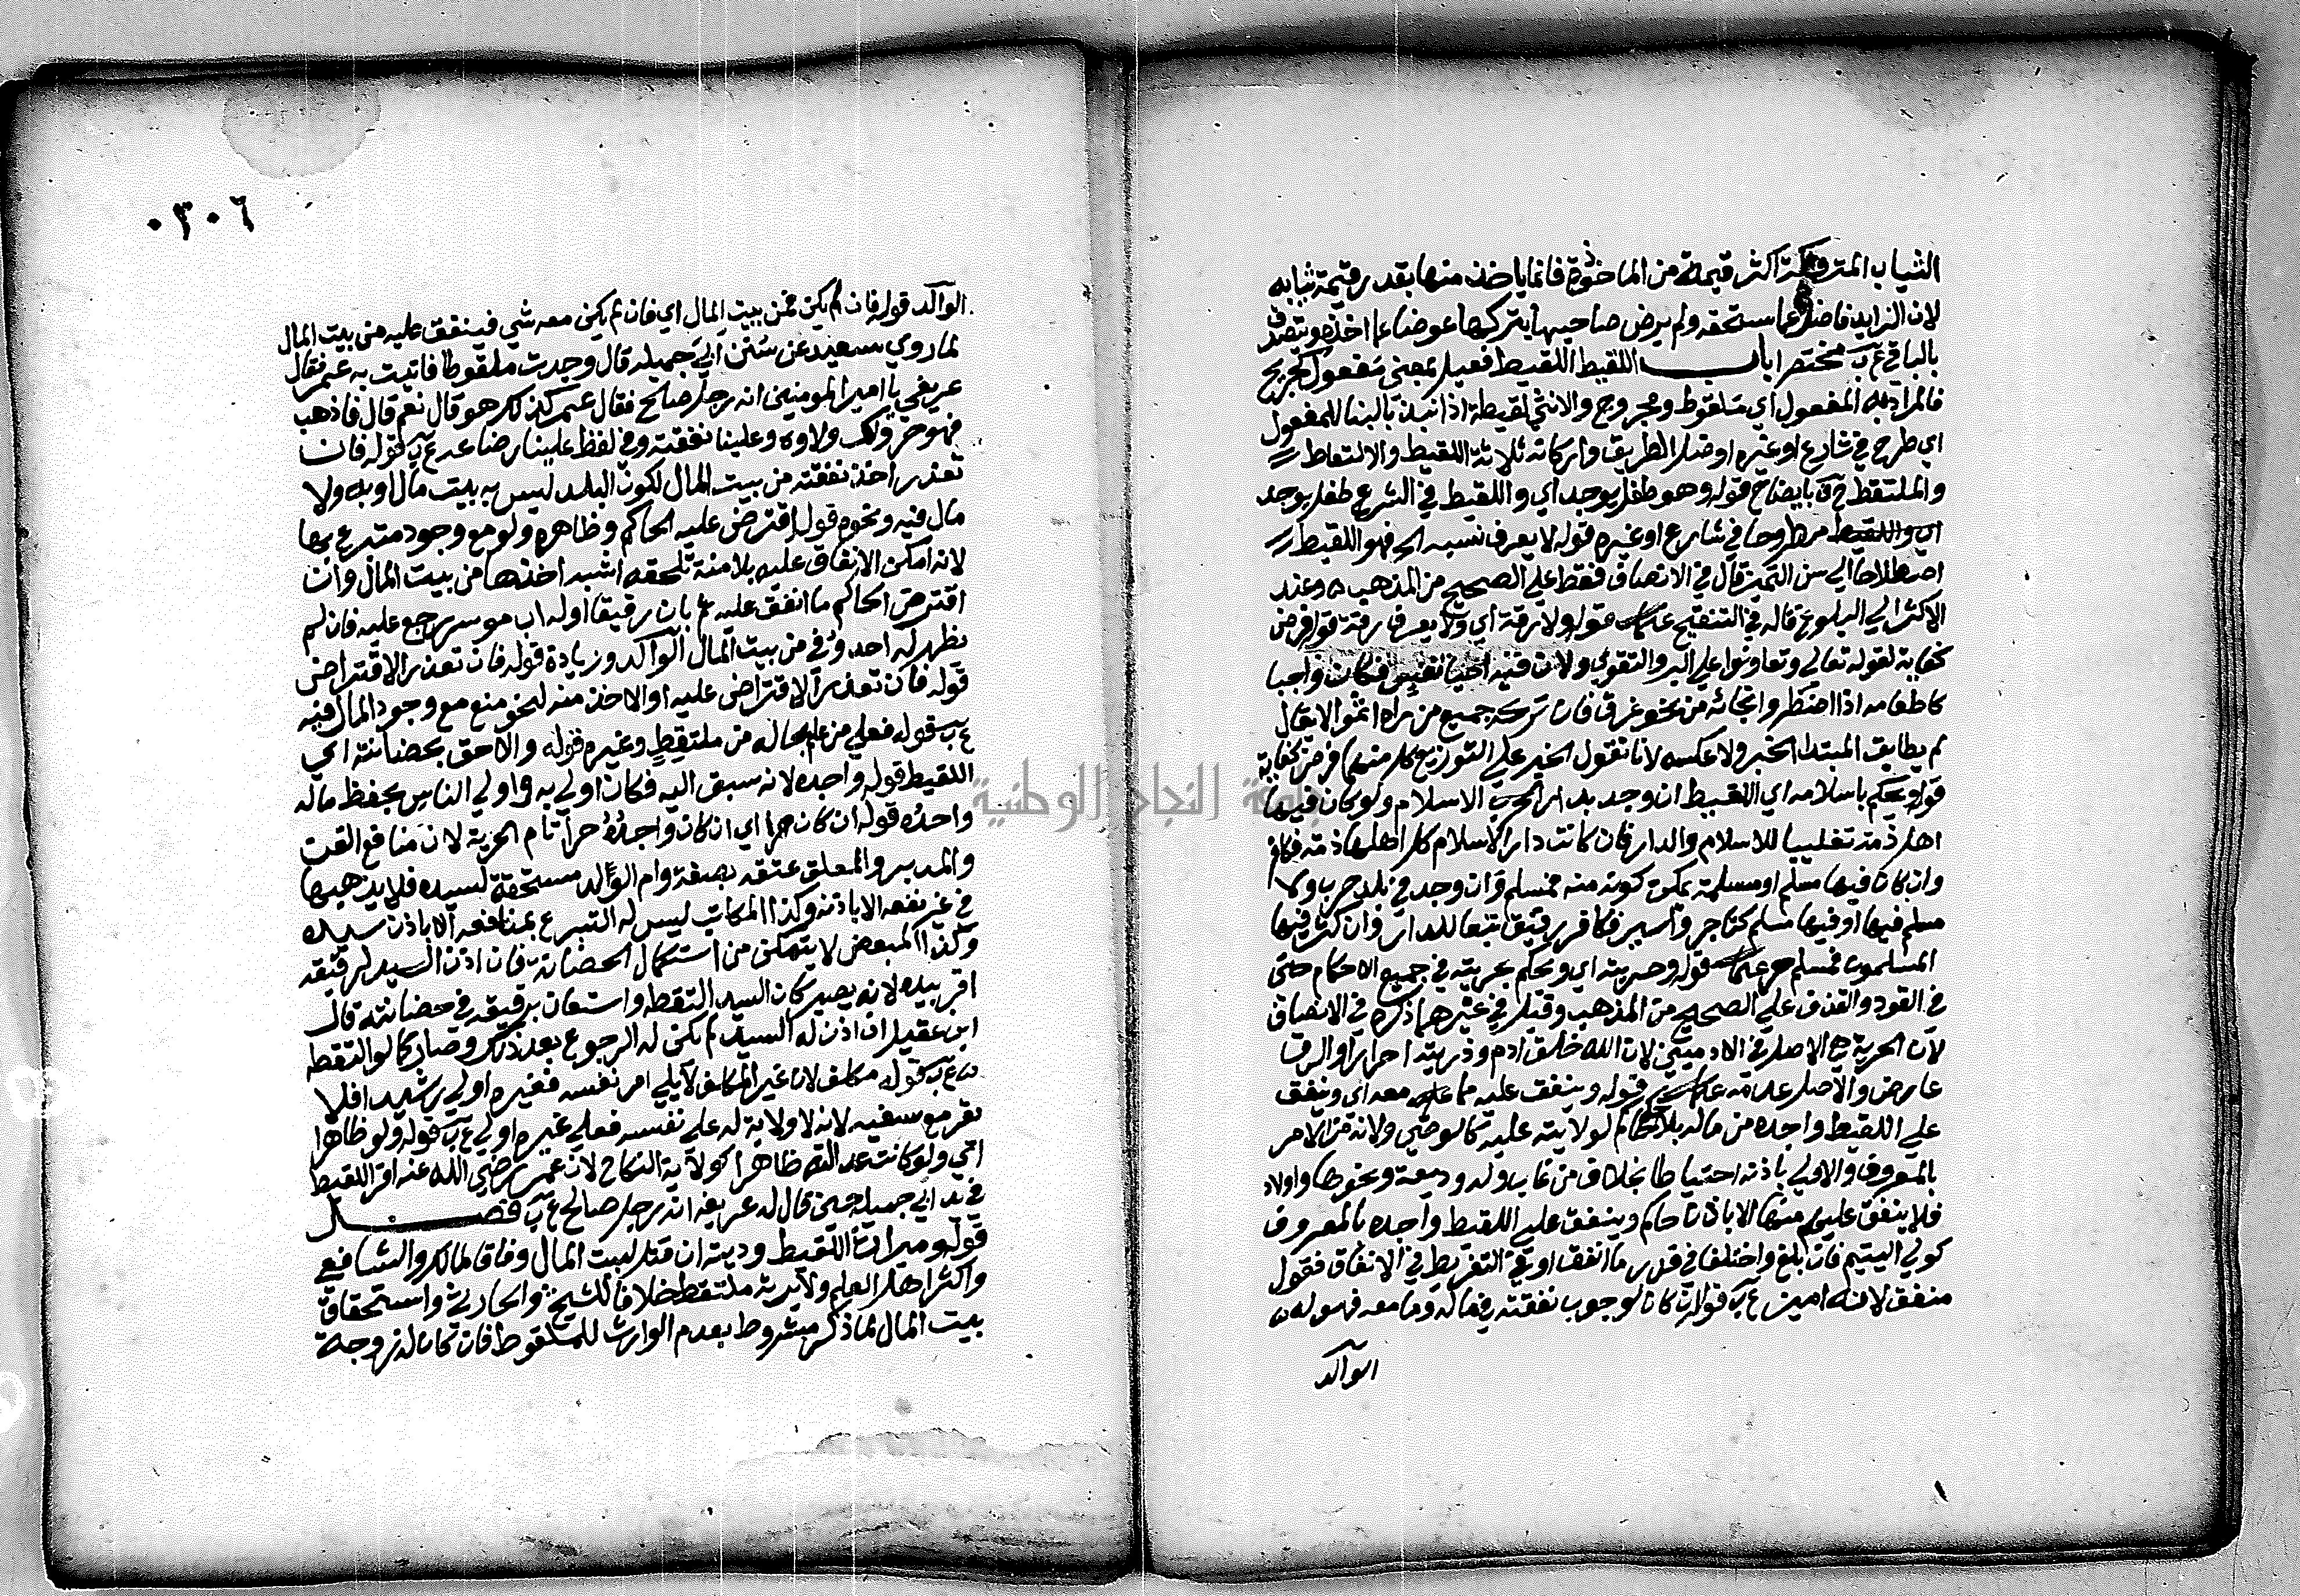 الثياب المتروكة اكثر قيمة من الماخوذة فانما ياخذ منها بقدر قيمة ثيابه
لان الزايد فاضل عما يستحقه ولم يرض صاحبها بتركها عوضا عما اخذه ويتصدق
بالباقي ع ب مختصرا باب اللقيط اللقيط فعيل بمعنى مفعول كجريح
فالمراد به المفعول اي ملقوط ومجروح والانثى لقيطة اذا نبذ بالبنا للمفعول
اي طرح في شارع او غيره او ضل الطريق واركانه ثلاثة اللقيط والالتقاط
والملتقط بايضاح قوله وهو طفل يوجد اي واللقيط في الشرع طفل يوجد
اي واللقيط مطروحا في شارع او غيره قوله لا يعرف نسبه الخ فهو اللقيط
اصطلاحا الي سن التميز قال في الانصاف فقط علي الصحيح من المذهب وعند
الاكثر الي البلوغ قاله في التنقيح قوله ولا رقه اي ولا يعرف رقه قوله فرض
كفاية لقوله تعالي وتعاونوا علي البر والتقوي ولان فيه احيا نفس فكان واجبا
كاطعامه اذا اضطر وانجائه من نحو غرق فان تركه جميع من راه اثموا لا يقال
لم يطابق المبتدا الخبر ولا عكسه لانا نقول الخبر علي التوزيع كل منهما فرض كفاية
قوله ويحكم باسلامه اي اللقيط ان وجد بدار الاسلام ولو كان فيها
اهل ذمة تغليبا للاسلام والدار فان كانت دار الاسلام كل اهلها ذمة فكافر
وان كان فيها مسلم او مسلمة يمكن كونه منه فمسلم وان وجد في بلد حرب ولا
مسلم فيها او فيها مسلم كتاجر واسير فكافر رقيق تبعا للدار وان كثر فيها
المسلمون فمسلم قوله وحريته اي ويحكم بحريته في جميع الاحكام حتى
في القود والقذف علي الصحيح من المذهب وقيل في غيرهما ذكره في الانصاف
لان الحرية هي الاصل في الادميين لان الله خلق ادم وذريته احرارا والرق
عارض والاصل عدمه قوله وينفق عليه مما معه اي وينفق
علي اللقيط واجده من ماله بلا حاكم لولايته عليه كالوصي ولانه من الامر
بالمعروف والاولي باذنه احتياطا بخلاف من غاب وله وديعة ونحوها واولاد
فلا ينفق عليهم منها الا باذن حاكم وينفق علي اللقيط واجده بالمعروف
كولي اليتيم فان بلغ واختلفا في قدر ما انفق او في التفريط في الانفاق فقول
منفق لانه امين ع ب قوله ان كان لوجوب نفقته في ماله وما معه فهو له
الوالد
٠٣٠٦
الوالد قوله فان لم يكن فمن بيت المال اي فان لم يكن معه شي فينفق عليه من بيت المال
لما روي سعيد عن سنن ابي جميله قال وجدت ملقوطا فاتيت به عمر فقال
عريفي يا امير المومنين انه رجل صالح فقال عمر اكذلك هو قال نعم قال فاذهب
فهو حر ولك ولاوه وعلينا نفقته وفي لفظ علينا رضاعه ع ب قوله فان
تعذر اخذ نفقته من بيت المال لكون البلد ليس به بيت مال او به ولا
مال فيه ونحوه قوله اقترض عليه الحاكم وظاهره ولو مع وجود متبرع بها
لانه امكن الانفاق عليه بلا منة تلحقه اشبه اخذها من بيت المال وان
اقترض الحاكم ما انفق عليه ثم بان رقيقا او له اب موسر رجع عليه فان لم
يظهر له احد وفي من بيت المال الوالد وزيادة قوله فان تعذر الاقتراض
قوله فان تعذر الاقتراض عليه او الاخذ منه لنحو منع مع وجود المال فيه
ع ب قوله فعلي من علم بحاله من ملتقط وغيره قوله والاحق بحضانته اي
اللقيط قوله واجده لانه سبق اليه فكان اولي به واولي الناس بحفظ ماله
واجده قوله ان كان حرا اي ان كان واجده حرا تام الحرية لان منافع القن
والمدبر والمعلق عتقه بصفة وام الولد مستحقة لسيده فلا يذهبها
في غير نفعه الا باذنه وكذا المكاتب ليس له التبرع بمنافعه الا باذن سيده
وكذا المبعض لا يتمكن من استكمال الحضانة فان اذن السيد لرقيقه
اقر بيده لانه يصير كان السيد التقط واستعان برقيقه في حضانته قال
ابن عقيل ان اذن له السيد لم يكن له الرجوع بعد ذلك وصار كما لو التقطه
ع ب قوله مكلف لان غير المكلف لا يلي امر نفسه فغيره اولي رشيد افلا
يقر مع سفيه لانه لا ولاية له علي نفسه فعلي غيره اولي ع ب قوله ولو ظاهرا
اي ولو كانت عدالته ظاهرا كولاية النكاح لان عمر رضي الله عنه اقر اللقيط
في يد ابي جميله حين قال له عريفه انه رجل صالح ع ب فصل
قوله وميراث اللقيط وديته ان قتل لبيت المال وفاقا لمالك والشافعي
واكثر اهل العلم ولا يرثه ملتقط خلافا للشيخ والحارثي واستحقاق
بيت المال لما ذكر مشروط بعدم الوارث للملقوط فان كان له زوجة